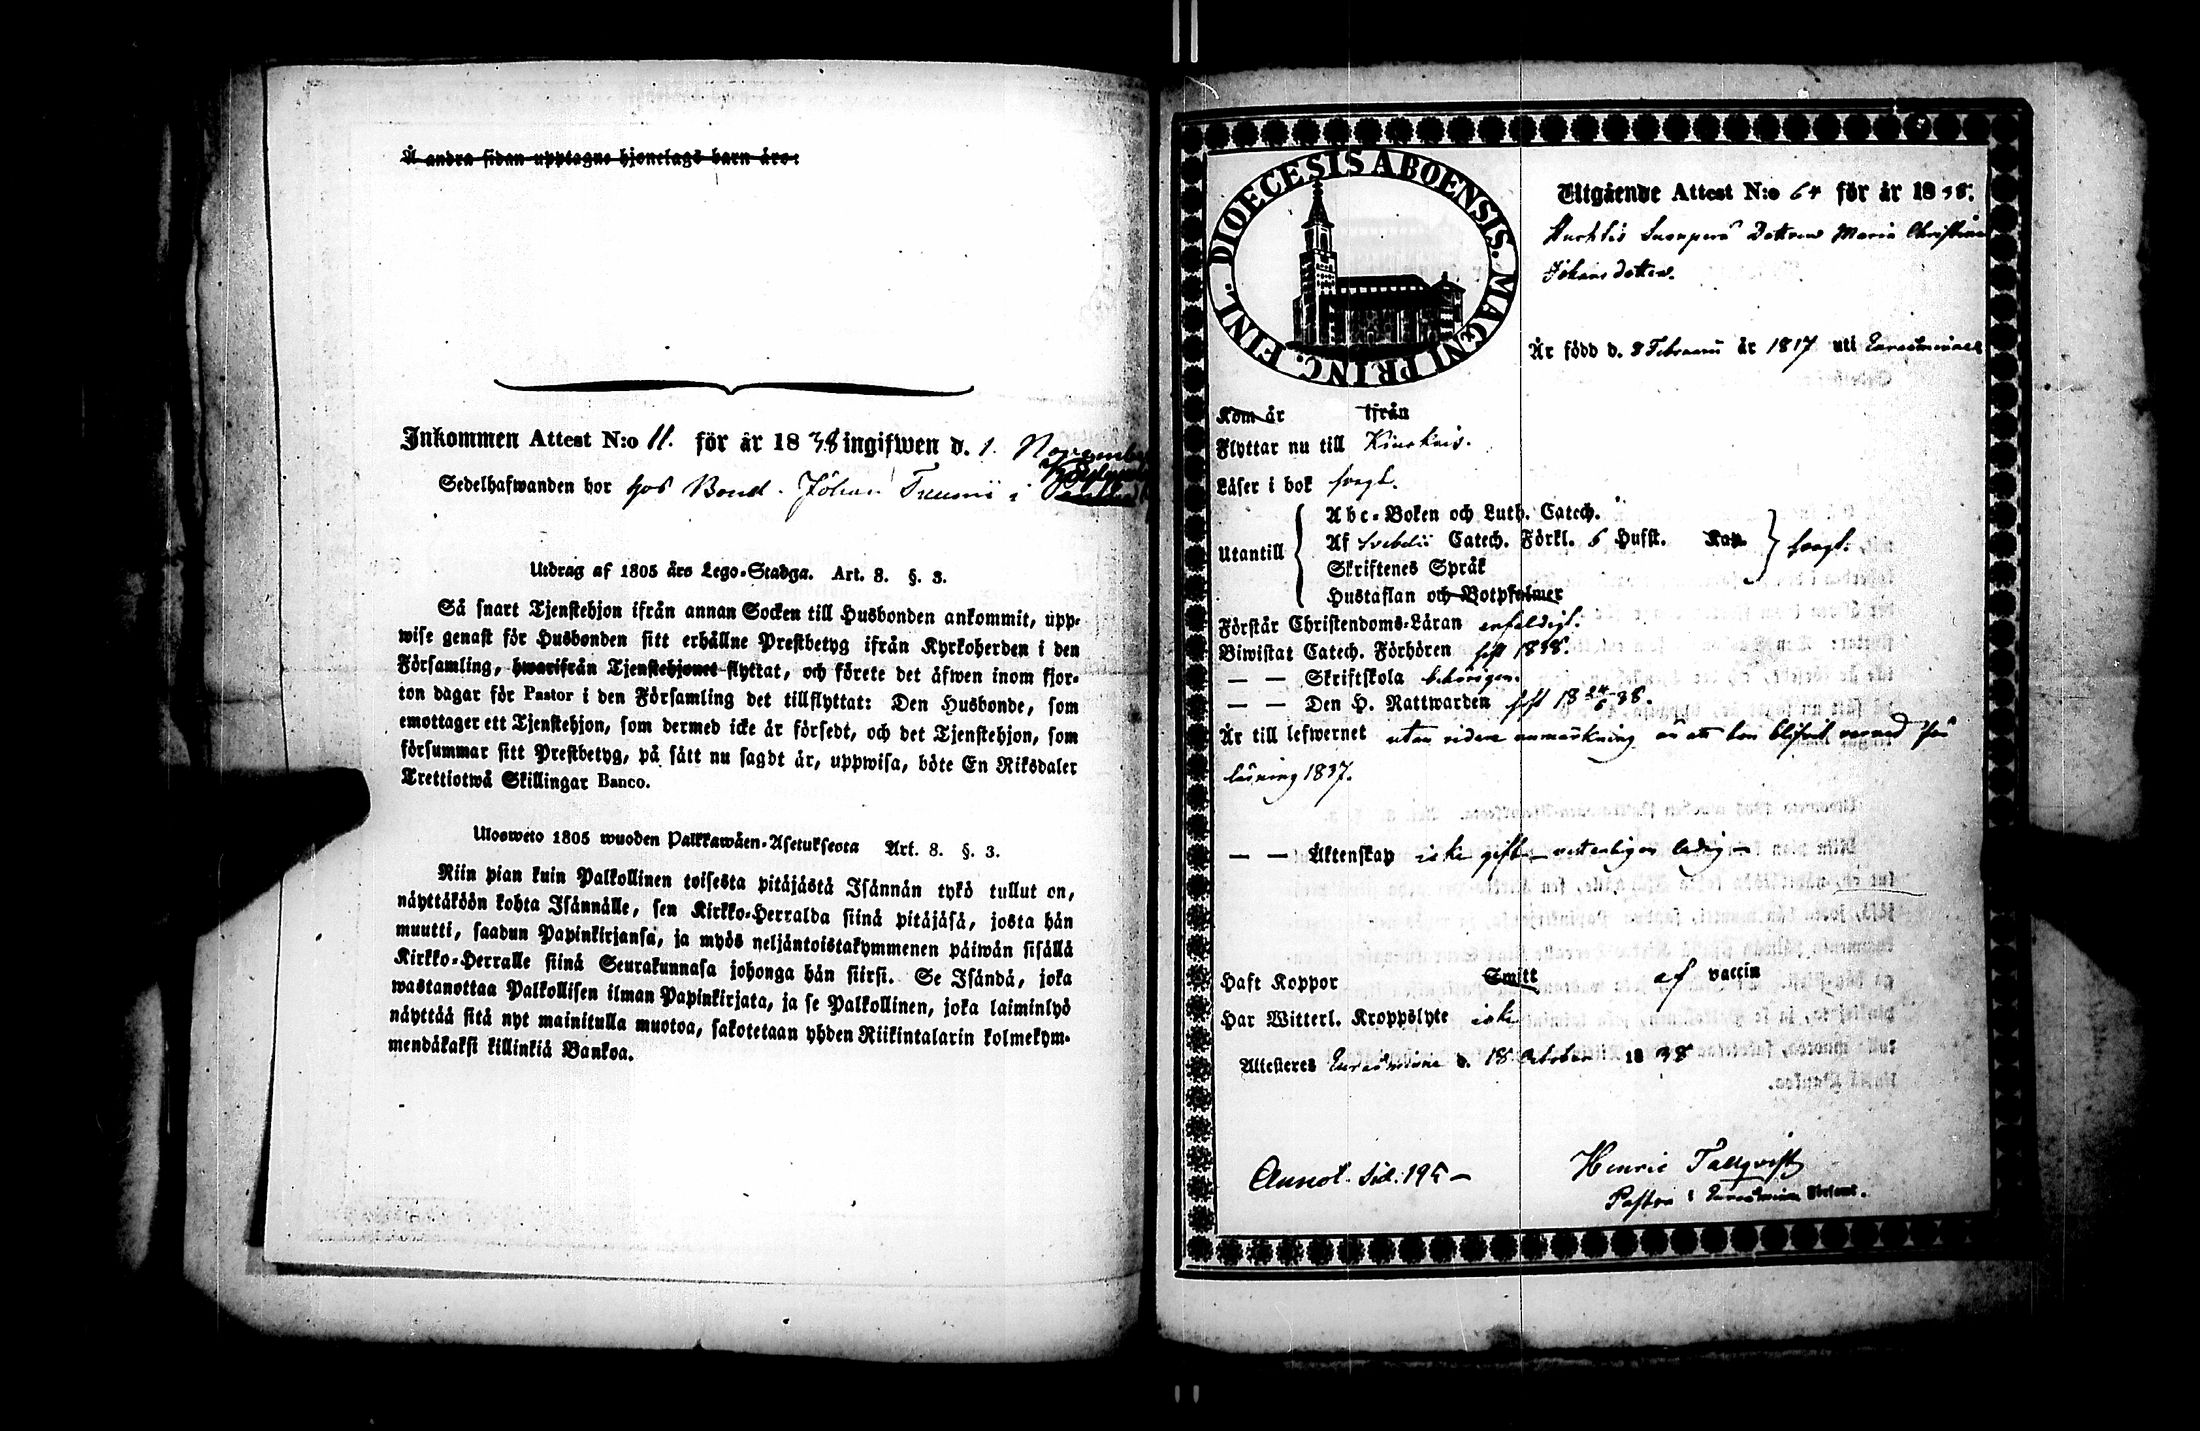 Å andra sidan upptagne hjonelags barn äro:
Inkommen Attest N:o 11. för år 1838 ingifwen d. 1. November
Sedelhafwanden bor hos Bond. Johan i
Utdrag af 1805 års Lego-Stadga. Art. 8. §. 3.
Så snart Tjenstehjon ifrån annan Socken till Husbonden ankommit, upp-
wise genast för Husbonden sitt erhållne Prestbetyg ifrån Kyrkoherden i den
Församling, hwarifrån Tjenstehjonet flyttat, och förete det äfwen inom fjor-
ton dagar för Pastor i den Församling det tillflyttat: Den Husbonde, som
emottager ett Tjenstehjon, som dermed icke är försedt, och det Tjenstehjon, som
försummar sitt Prestbetyg, på sätt nu sagdt är, uppwisa, böte En Riksdaler
Trettiotwå Skillingar Banco.
Ulosweto 1805 wuoden Palkkawäen-Asetuksesta Art. 8. §. 3.
Niin pian kuin Palkollinen toisesta pitäjästä Isännän tykö tullut on,
näyttäköön kohta Isännälle, sen Kirkko-Herralda siinä pitäjäsä, josta hän
muutti, saadun Papinkirjansa, ja myös neljäntoistakymmenen päiwän sisällä
Kirkko-Herralle siinä Seurakunnasa johonga hän siirsi. Se Isändä, joka
wastanottaa Palkollisen ilman Papinkirjata, ja se Palkollinen, joka laiminlyö
näyttää sitä nyt mainitulla muotoa, sakotetaan yhden Riikintalarin kolmekym-
mendäkaksi killinkiä Bankoa.
DIOECESIS ABOENSIS. MAGNI PRINC. FINL.
Utgående Attest N:o 64 för år 1838.
Dottren Maria Christina
Johansdotter.
Är född d. 8 Februarii år 1817 uti Euraåminne
Kom år ifrån
Flyttar nu till Kiukais.
Läser i bok svagt.
Utantill
Abc-Boken och Luth. Catech.
Af Svebelii Catech. Förkl. 5 Hufst. Kap.
Skriftenes Språk
Hustaflan och Botpsalmer
svagt.
Förstår Christendoms-Läran enfaldigt.
Biwistat Catech. Förhören sist 1838.
— — Skriftskola behörigen.
— — Den H. Nattwarden sist 18 24/6 38.
Är till lefwernet utan vidare anmärkning än att hon blifvit varnad för
läsning 1837.
— — Äktenskap icke gift — vetterligen ledig —
Haft Koppor Smitt af vaccin
Har Witterl. Kroppslyte icke
Attesteres Euraåminne d. 18 October 1838
Annot. Sid. 195 —
Henric Tallqvist
Pastor i Euraåminne Församl.